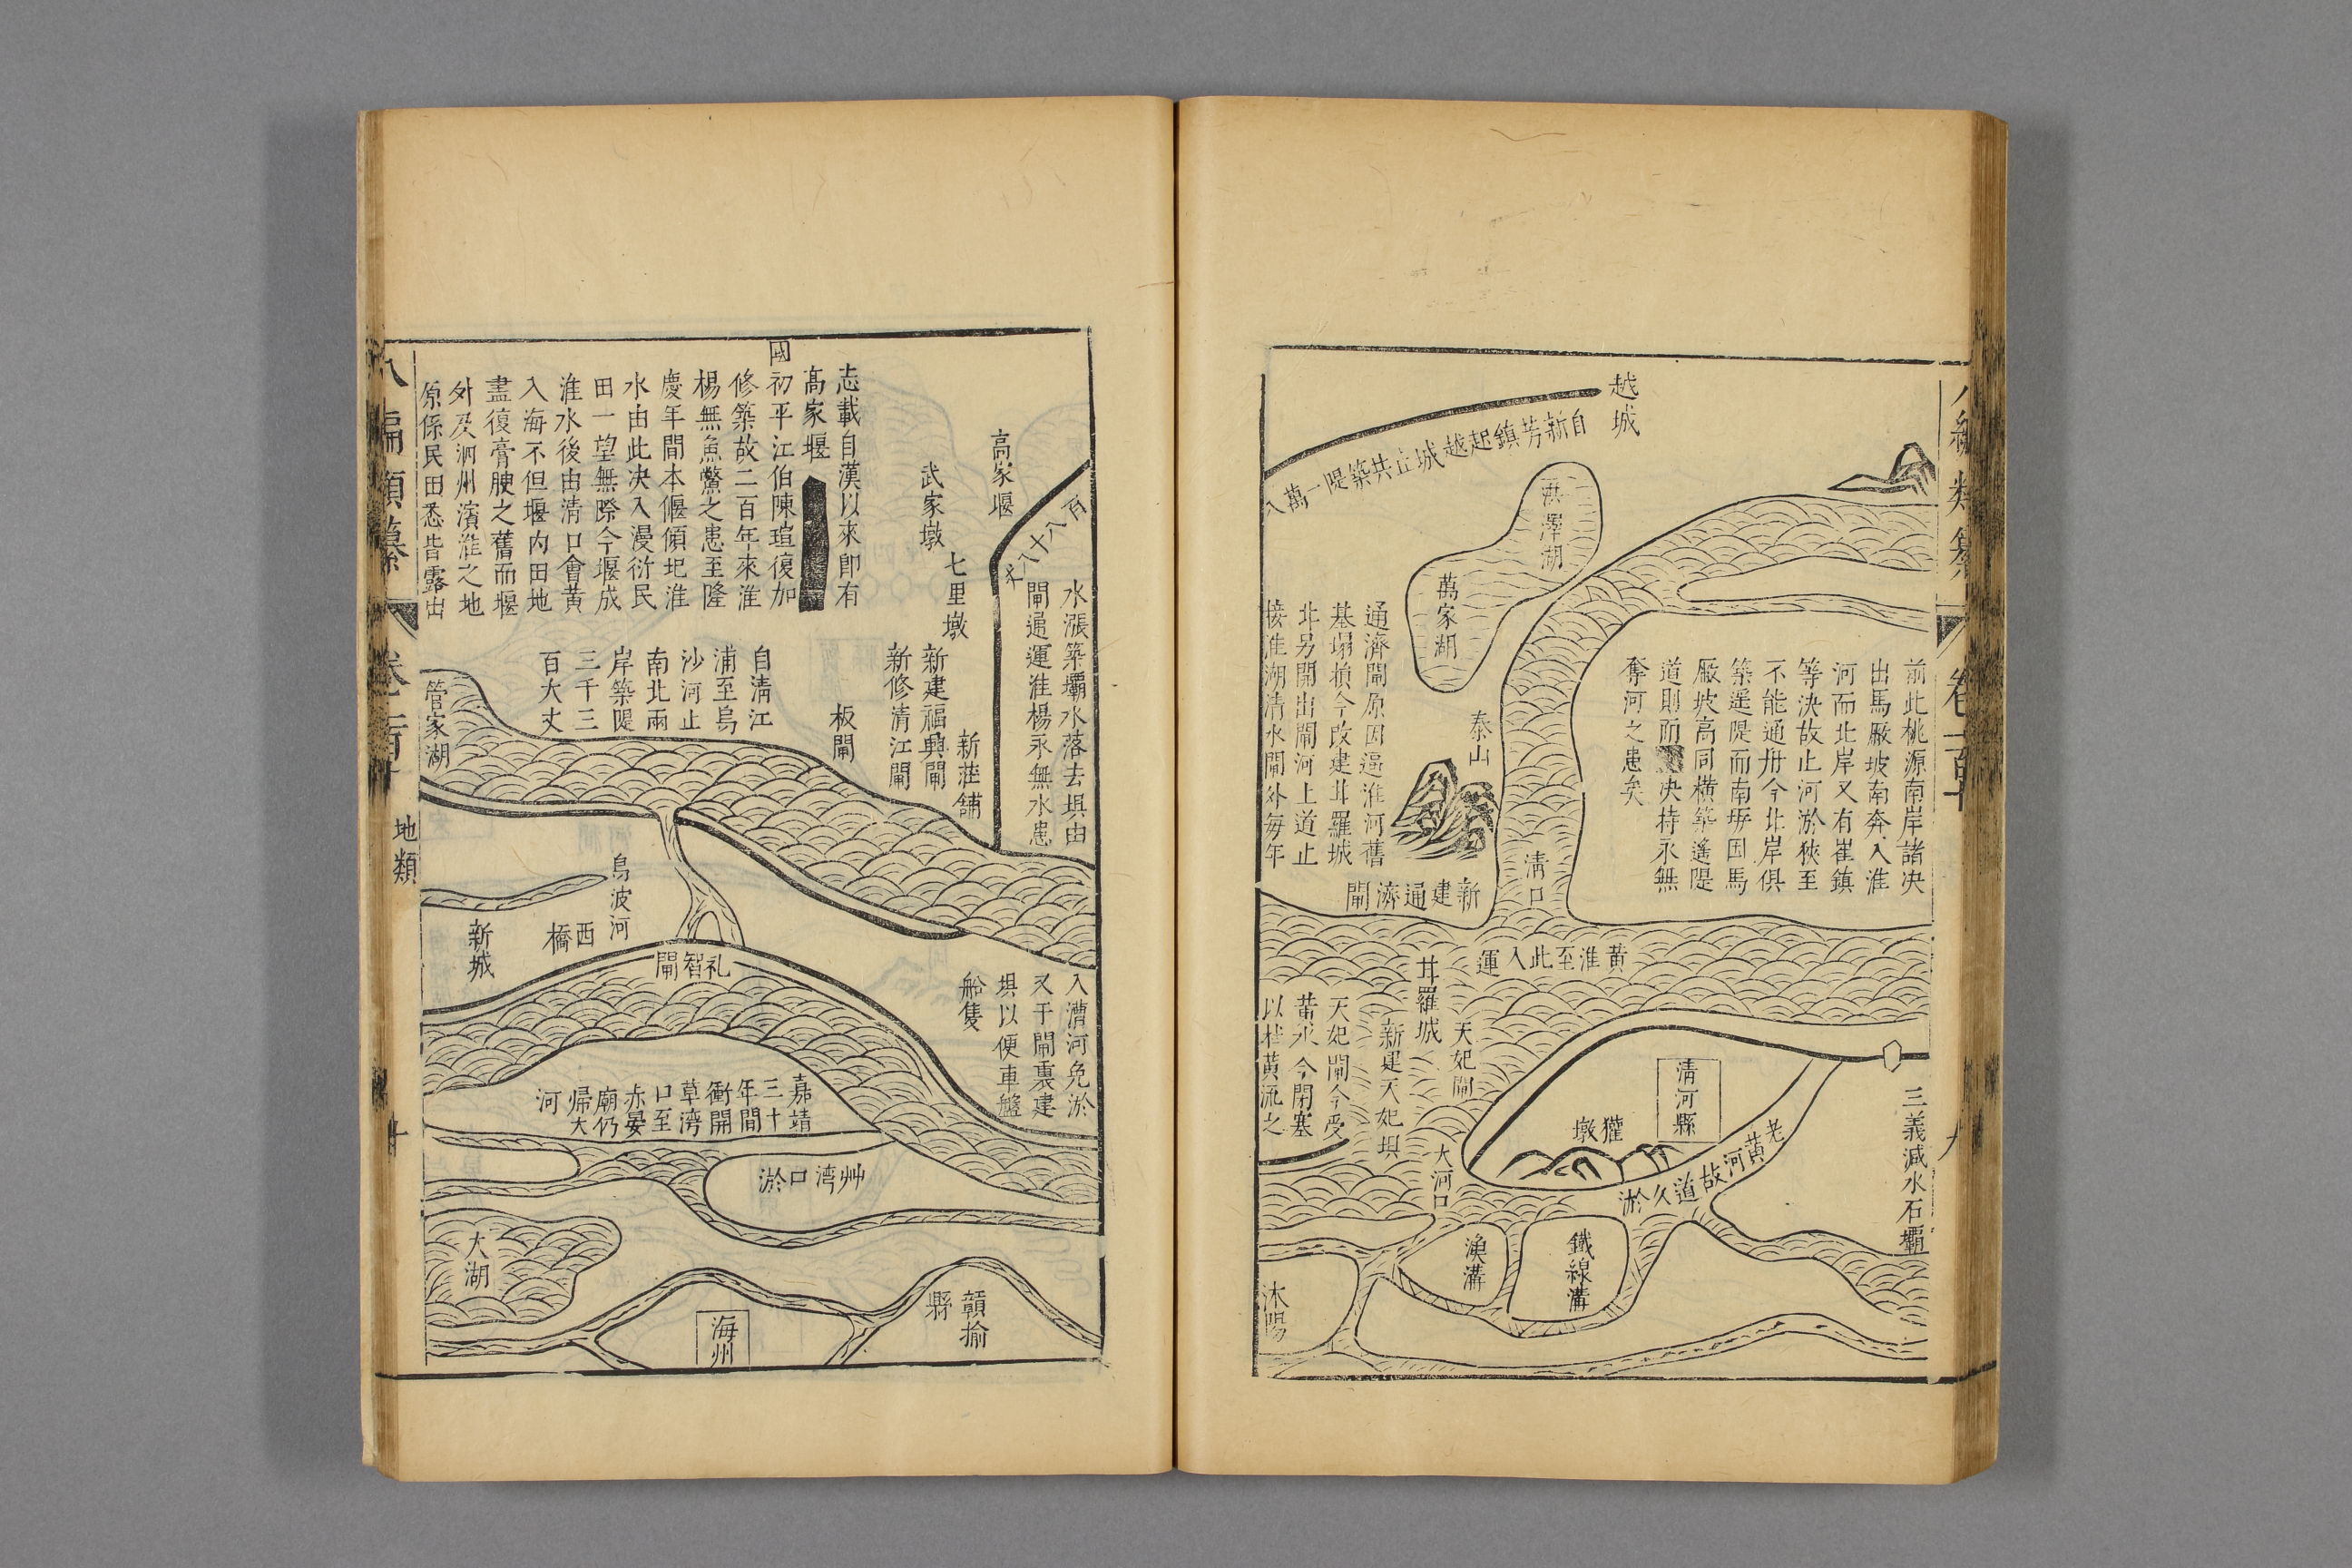 越城
自新芳鎮起越城止共築隄一萬八
洪澤湖
萬家湖
前此桃源南岸諸決
出馬厰坡南奔入淮
河而北岸又有崔鎮
等決故止河淤狹至
不能通舟今北岸俱
築遥隄而南岸因馬
厰坡高同橫築遥隄
道則而決持永無
奪河之患矣
泰山
通濟閘原因逼淮河舊
基塌損今改建甘羅城
北另開出閘河上道止
接淮湖清水閘外每年
新建通濟閘
清口
黃淮至此入運
甘羅城
天妃閘
新建天妃埧
天妃閘今受
黃水今閉塞
以杜黃流之
大河口
清河縣
獾墩
老黃河故道久淤
三義减水石壩
漁溝
鐵線溝
沭陽
八編類纂
卷一百十
九
百八十八丈
水漲築壩水落去埧由
閘通運淮楊永無水患
高家堰
武家墩
七里墩
新莊舖
新建福興閘
新修清江閘
板閘
志載自漢以來即有
髙家堰
國初平江伯陳瑄復加
修築故二百年來淮
楊無魚鱉之患至隆
慶年間本偃傾圯淮
水由此决入漫衍民
田一望無際今堰成
淮水後由清口會黃
入海不但堰内田地
盡復膏腴之舊而堰
外及泗州濱淮之地
原係民田悉皆露出
自清江
浦至烏
沙河止
南北兩
岸築隄
三千三
百大丈
管家湖
烏波河
西橋
新城
礼智閘
入漕河免淤
又于閘裏建
埧以便車盤
船隻
嘉靖
三十
年間
衝開
草湾
口至
赤晏
廟仍
帰大
河
艸湾口淤
大湖
海州
贛揄縣
八編類纂
卷一百十
地類
十